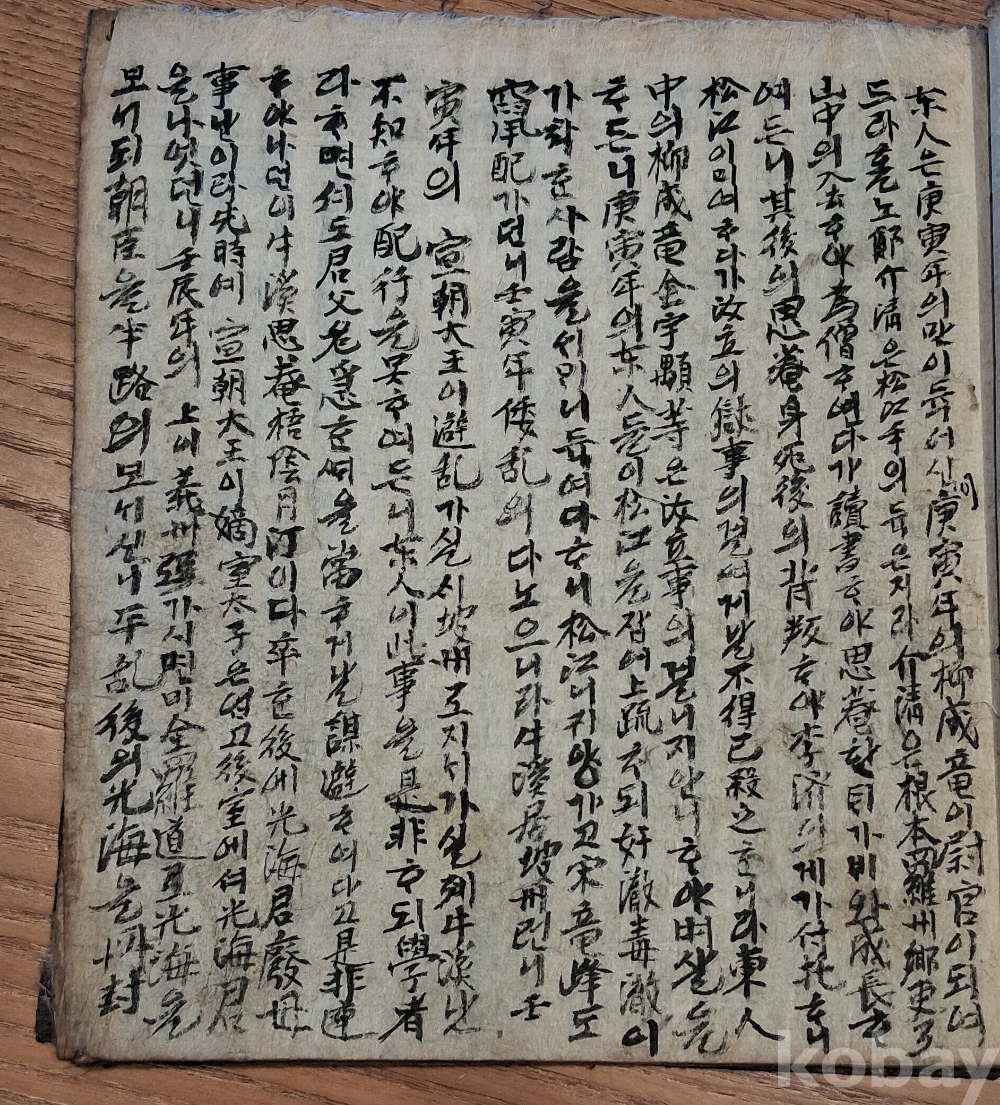 東人은庚寅年의만이듁어시니庚寅年의柳成竜이尉官이되여
드라호노鄭介淸은松江손의듁은지라介淸은根本羅州鄕吏로
山中의入去하야爲僧하엿다가讀書하야思菴
여든니其後의思菴身死後의背叛하야李潑의게가付托하니
松江이미여하다가汝立의獄事의걸여거날不得已殺之한니라東人
中의柳成竜金宇顒等은汝立事의걸니지안니하야벼살을
하든니庚寅年의東人들이松江을잡여上疏하되奸澈毒澈이
가착한사람을쥐기니듁여다하니松江니귀양가고宋竜峰도
竄配가던니壬寅年倭乱의다노으니라牛溪居坡州런니壬
寅年의 宣朝大王이避乱가실시坡州로지가실제牛溪난
不知하야配行을못하여든니東人이此事을是非하되學者
라하면서도君父危急한때을當하거날謀避하여다고是非連
하야나던이牛溪思菴梧陰月汀이다卒한後에光海君廢母
事난이라先時에 宣朝大王이嫡室太子은업고後室에셔光海君
을나엇던니壬辰年의 上이義州가시면비全羅道로光海을
보니되朝臣을半路의보시니두乱後의光海을冊封
kobay